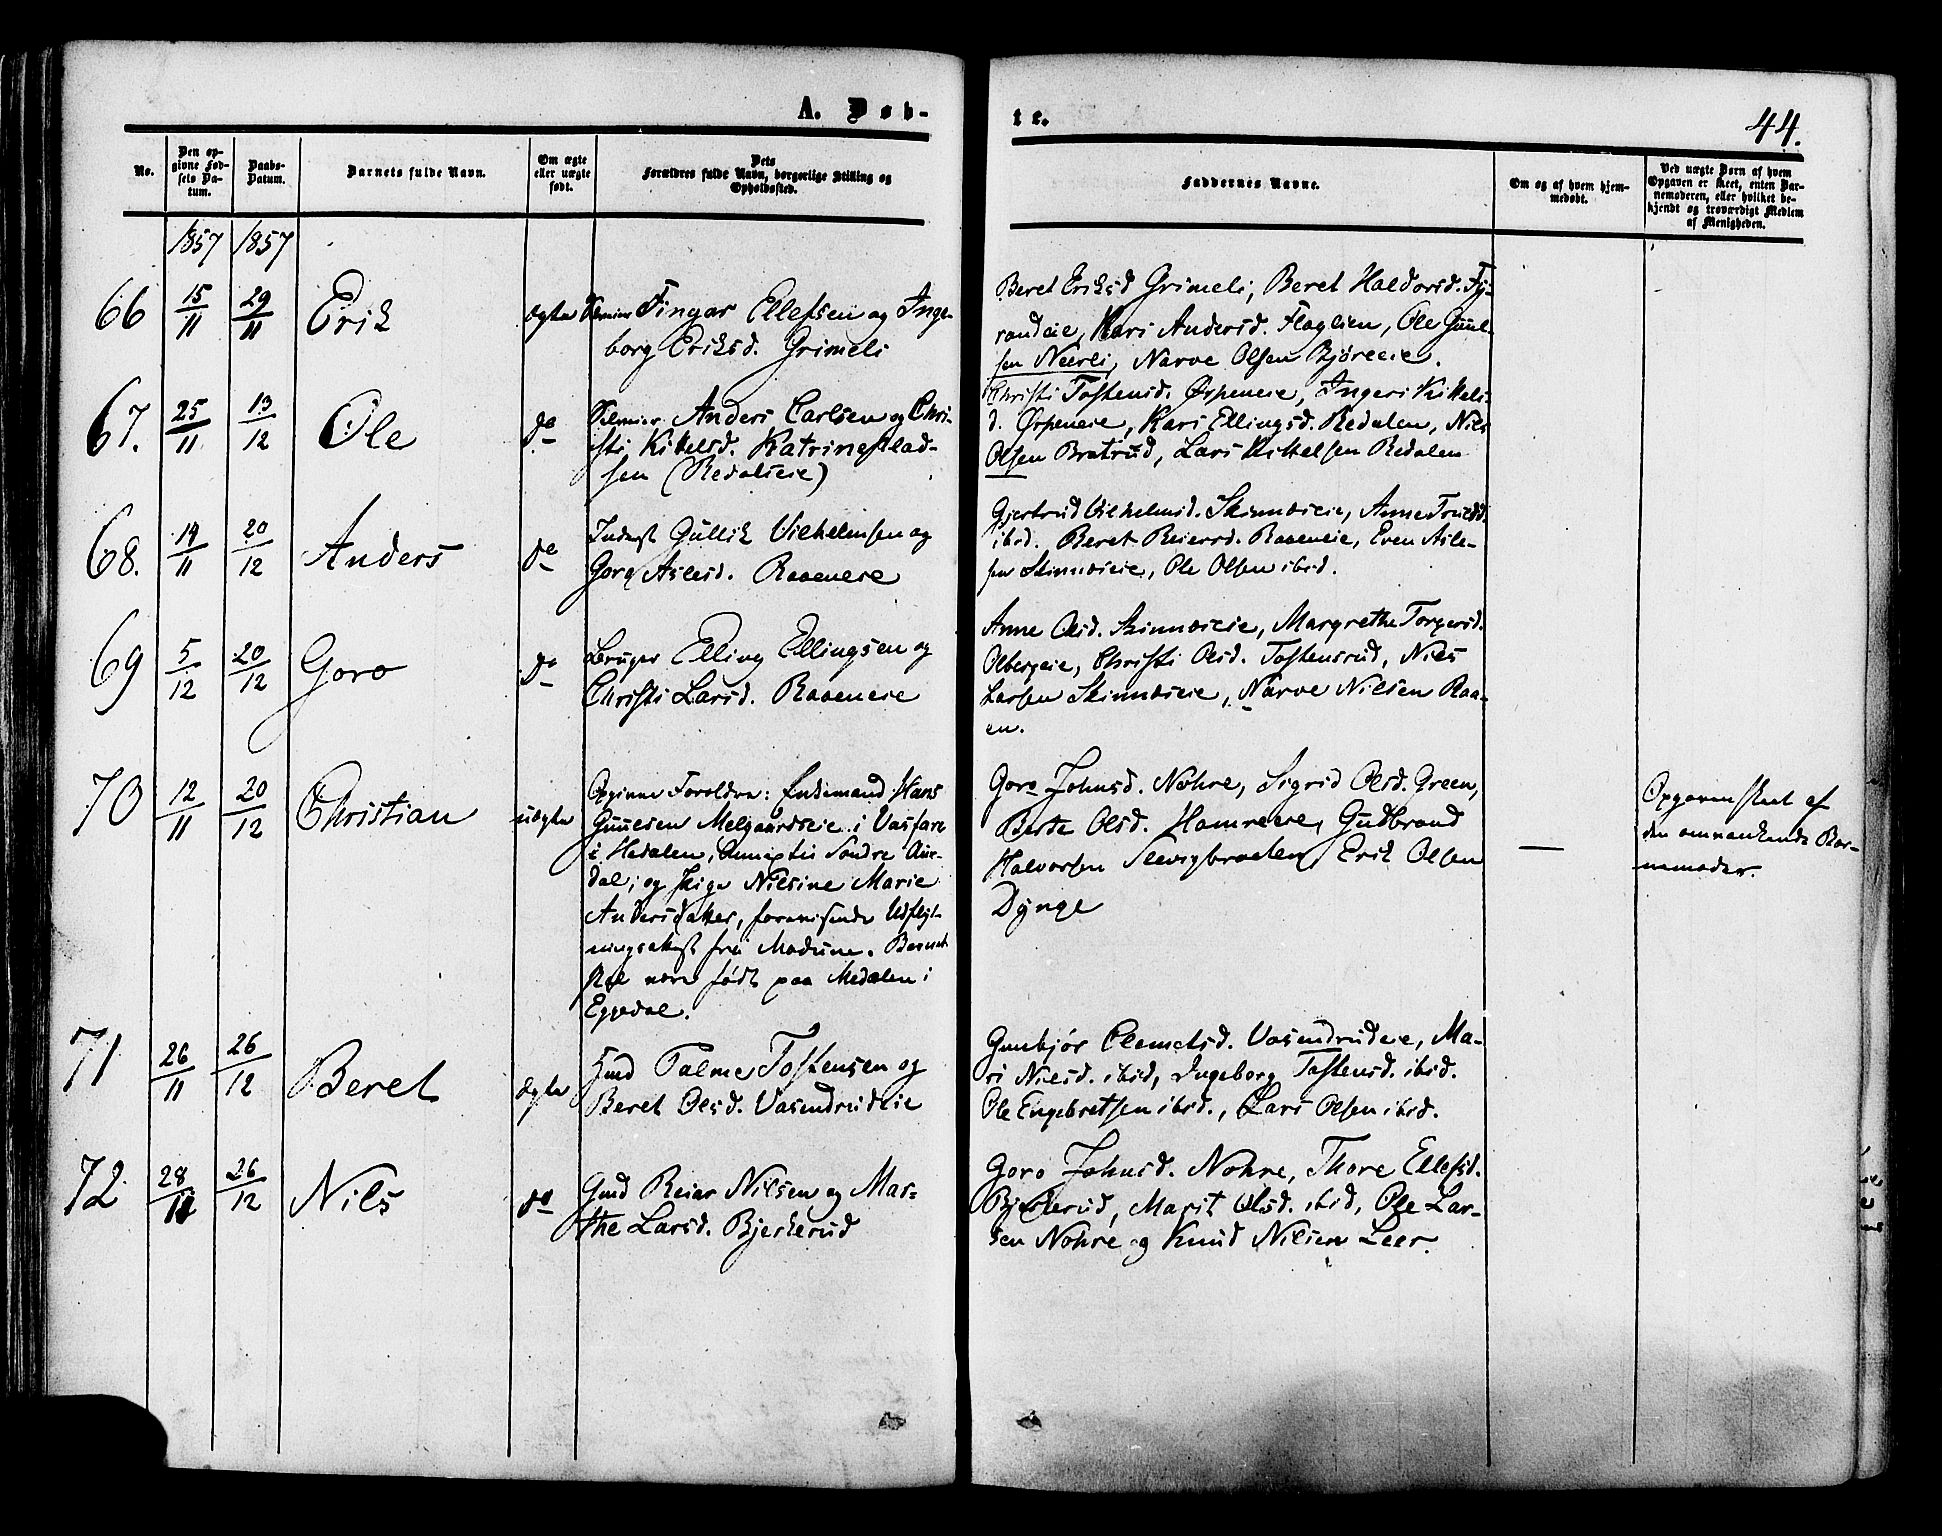 A. Døb-
te.
44.
No.
Den op-
givne Fød-
sels Da-
tum.
Daabs-
Datum.
Barnets fulde Navn.
Om ægte
eller uægte
født.
Dets
Forældres fulde Navn, borgerlige Stilling og
Opholdssted.
Faddernes Navne.
Om og af hvem hjem-
medøbt.
Ved uægte Børn af hvem
Opgaven er skeet, enten Bar-
nemoderen, eller hvilket be-
kjendt og troværdigt Medlem
af Menigheden.
1857 1857
66 15/11 29/11 Erik ægte Selveier Fingar Ellefsen og Inge-
borg Eriksd. Grimeli
Beret Eriksd Grimeli, Beret Haldorsd. Ty-
randeie, Kari Andersd. Flaglien, Ole Gunl-
sen Neerli, Narve Olsen Bjøreeie.
67. 25/11 13/12 Ole do Selveier Anders Carlsen og Chri-
sti Kittelsd. Katrineplad-
sen (Redalseie)
Christi Tostensd. Ørpeneie, Ingeri Kittels-
d. Ørpeneie, Kari Ellingsd. Redalen, Nils
Olsen Bratrud, Lars Kittelsen Redalen
68. 14/11 20/12 Anders do Inderst Gullik Vilhelmsen og
Goro Aslesd. Raaeneie
Gjertrud Vilhelmsd. Skinnæseie, Anne Truelsd.
ibid. Beret Reiersd. Raaeneie, Even Asle-
sen Skinnæseie, Ole Olsen ibid.
69 5/12 20/12 Goro do Bruger Elling Ellingsen og
Christi Larsd. Raaeneie
Anne Olsd. Skinnæseie, Margrethe Torgersd.
Olbergeie, Christi Olsd. Tostensrud, Niels
Larsen Skinnæseie, Narve Nilsen Raa-
en.
70 12/11 20/12 Christian uægte Opgivne Foreldre: Enkemand Hans
Gunesen Melgaardseie i Vasfare
i Hedalen, Annex til Søndre Aur-
dal; og Pige Nilsine Marie
Andersdatter, foreviisende Udflyt-
ningsattest fra Modum. Barnet
skal være født paa Medalen i
Eggedal.
Goro Johnsd. Nohre, Sigrid Olsd. Green,
Berte Olsd. Hamreeie, Gudbrand
Halvorsen Sleevigbraaten, Erik Olsen
Dynge
—
Opgaven skeet af
den omvankende Bar-
nemoder.
71 26/11 26/12 Beret ægte Hmd Palme Tostensen og
Beret Olsd. Vasendrudeie
Gunbjør Clemetsd. Vasendrudeie, Ma-
ri Nielsd. ibid, Ingeborg Tostensd. ibid.
Ole Engebretsen ibid., Lars Olsen ibid.
72 28/11 26/12 Nils do Gmd Reier Nilsen og Mar-
the Larsd. Bjertnerud
Goro Johnsd. Nohre, Thore Ellefsd.
Bjerkerud, Marit Olsd. ibid, Ole Lar-
sen Nohre og Knud Nilsen Leer.